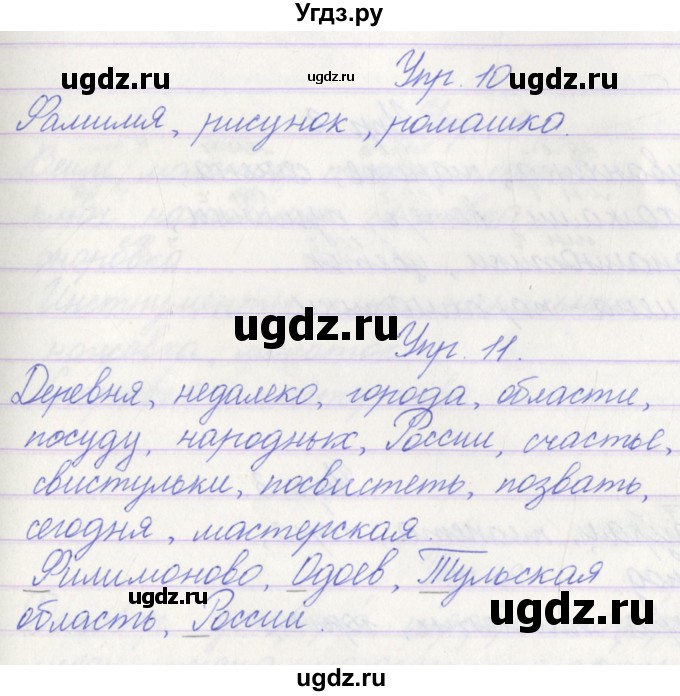 Угдз.ру
ugdz.ru ugdz.ru ugdz.ru
Упр. 10
Фамилия, рисунок, ромашка.
ugdz.ru
Упр. 11.
Деревня, недалеко, города, области,
посуду, народных, России, счастье,
свистульки, посвистеть, позвать,
сегодня, мастерская.
Филимоново, Одоев, Тульская
область, России.
ugdz.ru ugdz.ru
ugdz.ru